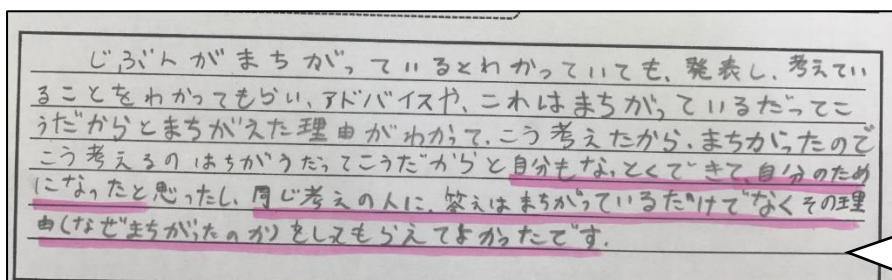 じぶんがまちがっているとわかっていても、発表し、考えてい
ることをわかってもらい、アドバイスや、これはまちがっているだってこ
うだからとまちがえた理由がわかって、こう考えたから、まちがったので
こう考えるのはちがうだってこうだからと自分もなっとくできて、自分のため
になったと思ったし、同じ考えの人に、答えはまちがっているだけでなくその理
由(なぜまちがったのか)をしってもらえてよかったです。